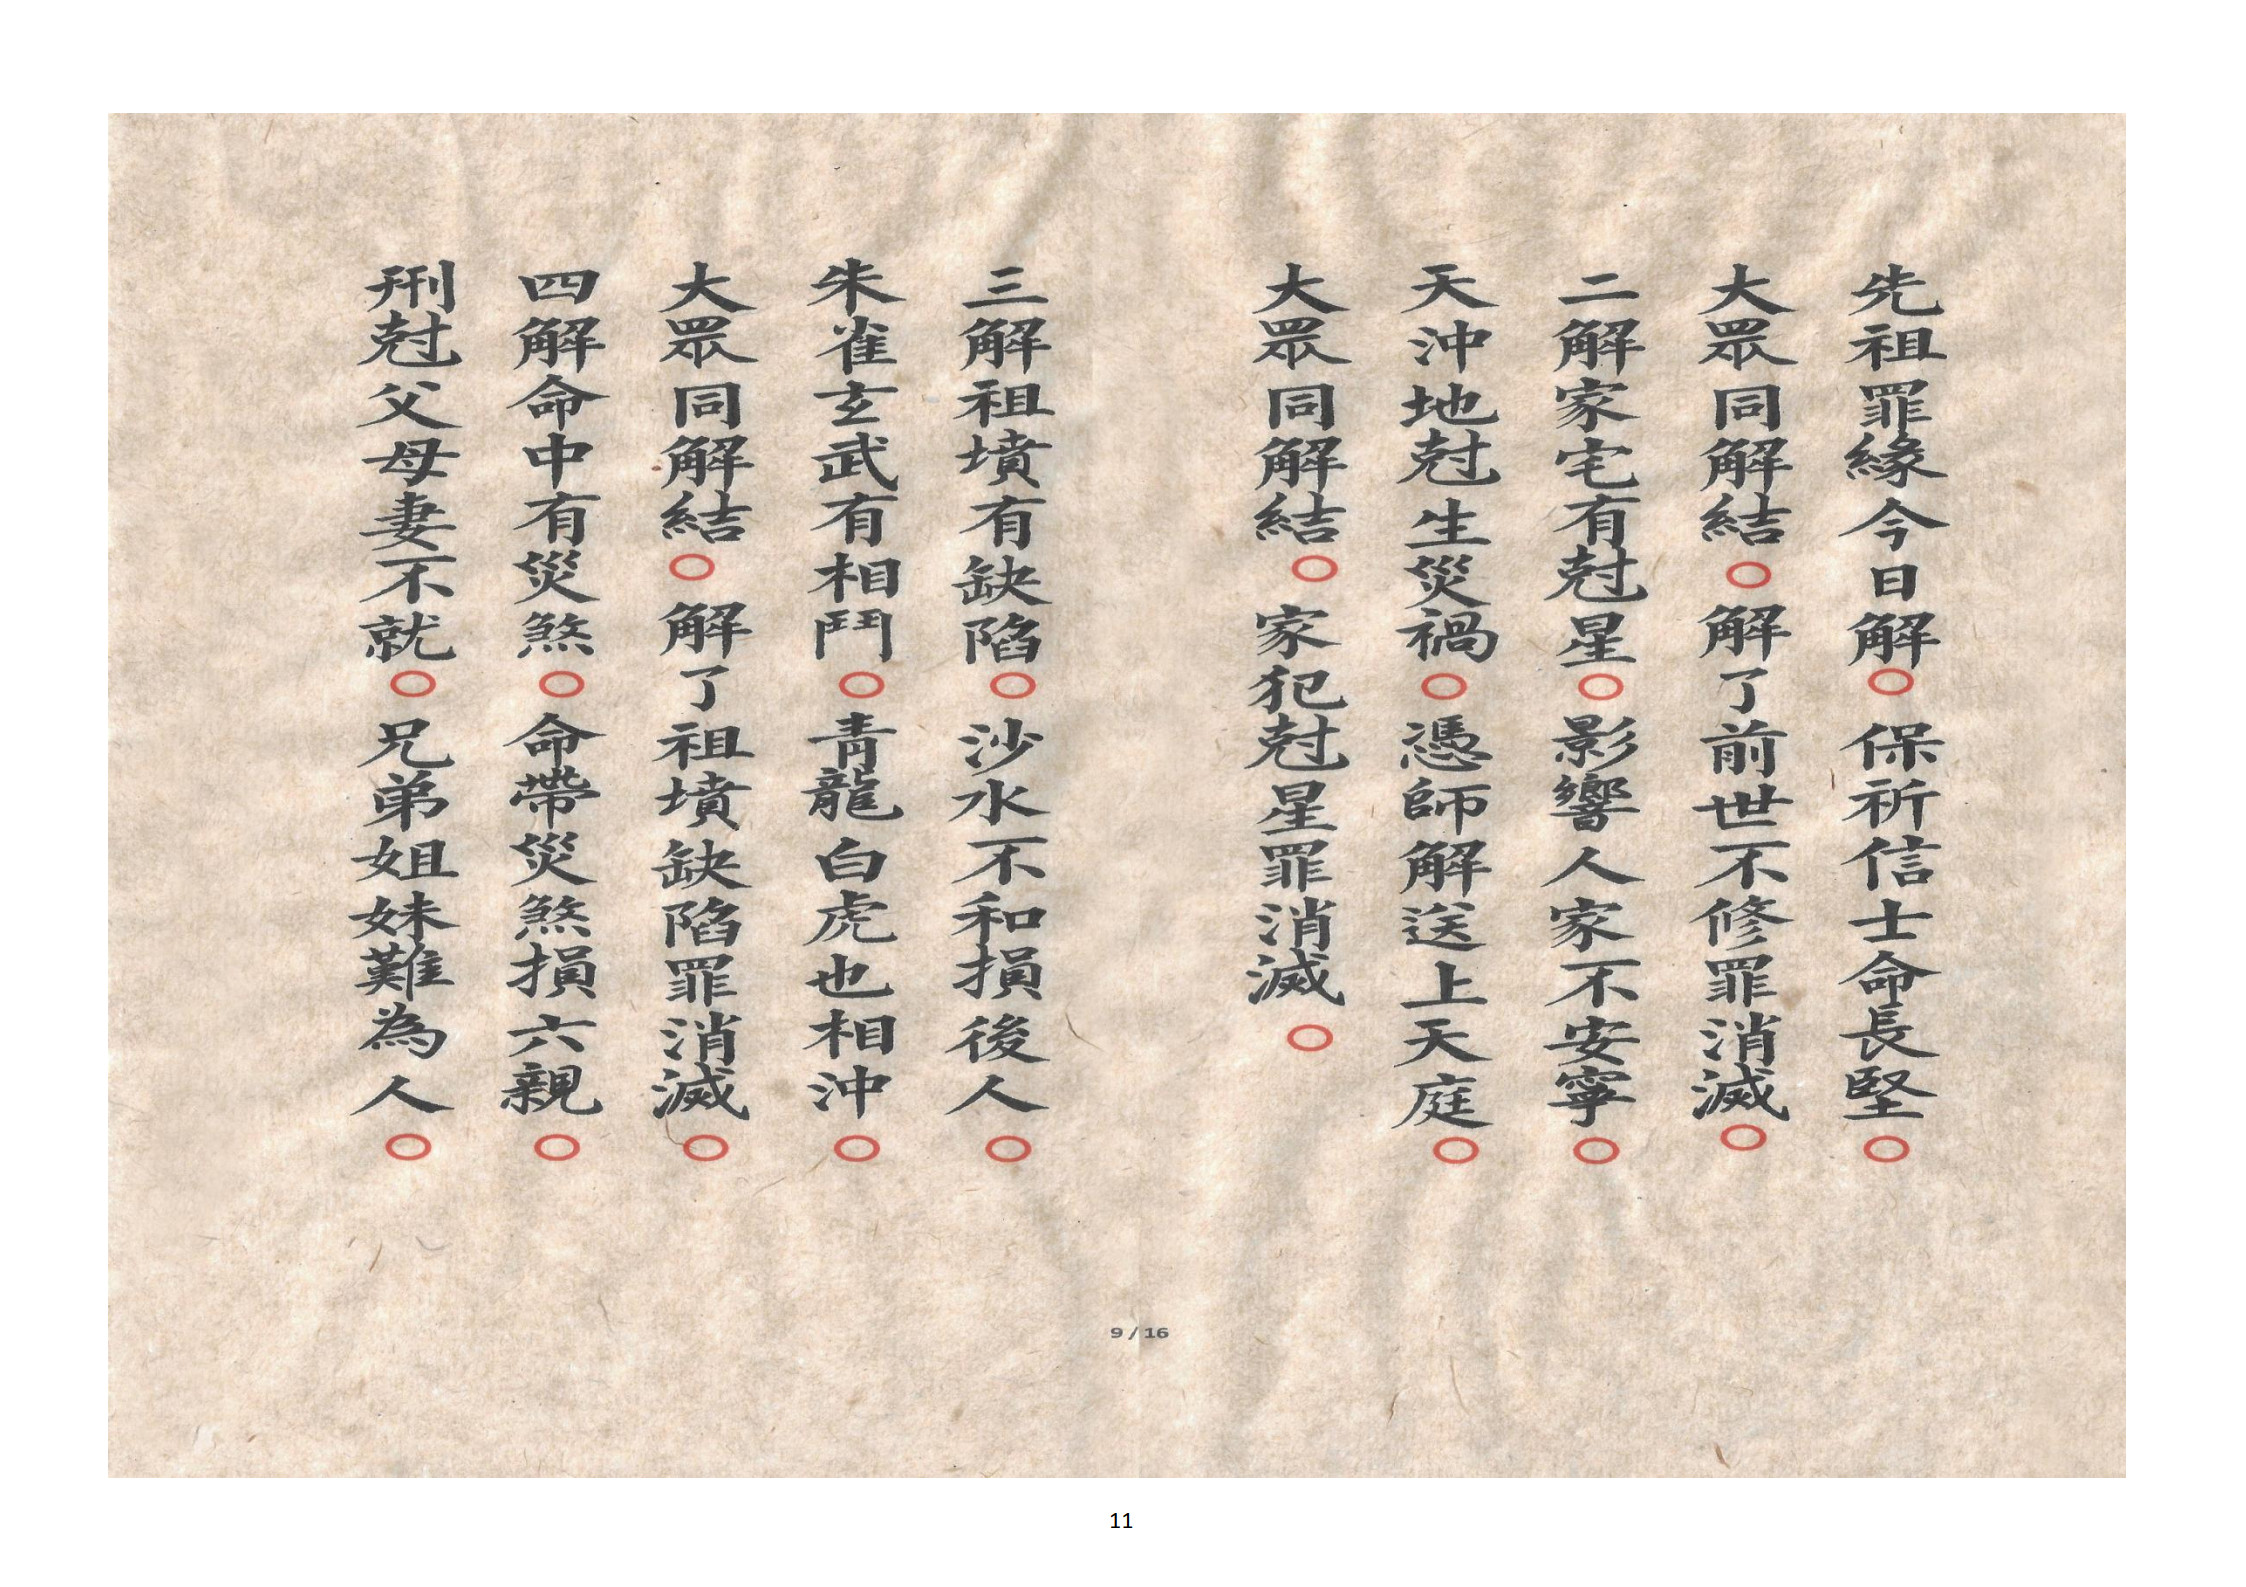 先祖罪緣今日解○保祈信士命長堅○
大眾同解結○解了前世不修罪消滅○
二解家宅有尅星○影響人家不安寧○
天沖地尅生災禍○憑師解送上天庭○
大眾同解結○家犯尅星罪消滅○
三解祖墳有缺陷○沙水不和損後人○
朱雀玄武有相鬥○青龍白虎也相沖○
大眾同解結○解了祖墳缺陷罪消滅○
四解命中有災煞○命帶災煞損六親○
刑尅父母妻不就○兄弟姐妹難為人○
9 / 16
11